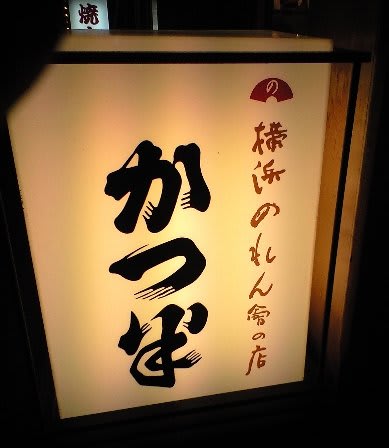 焼
の
横浜のれん會の店
かつ半